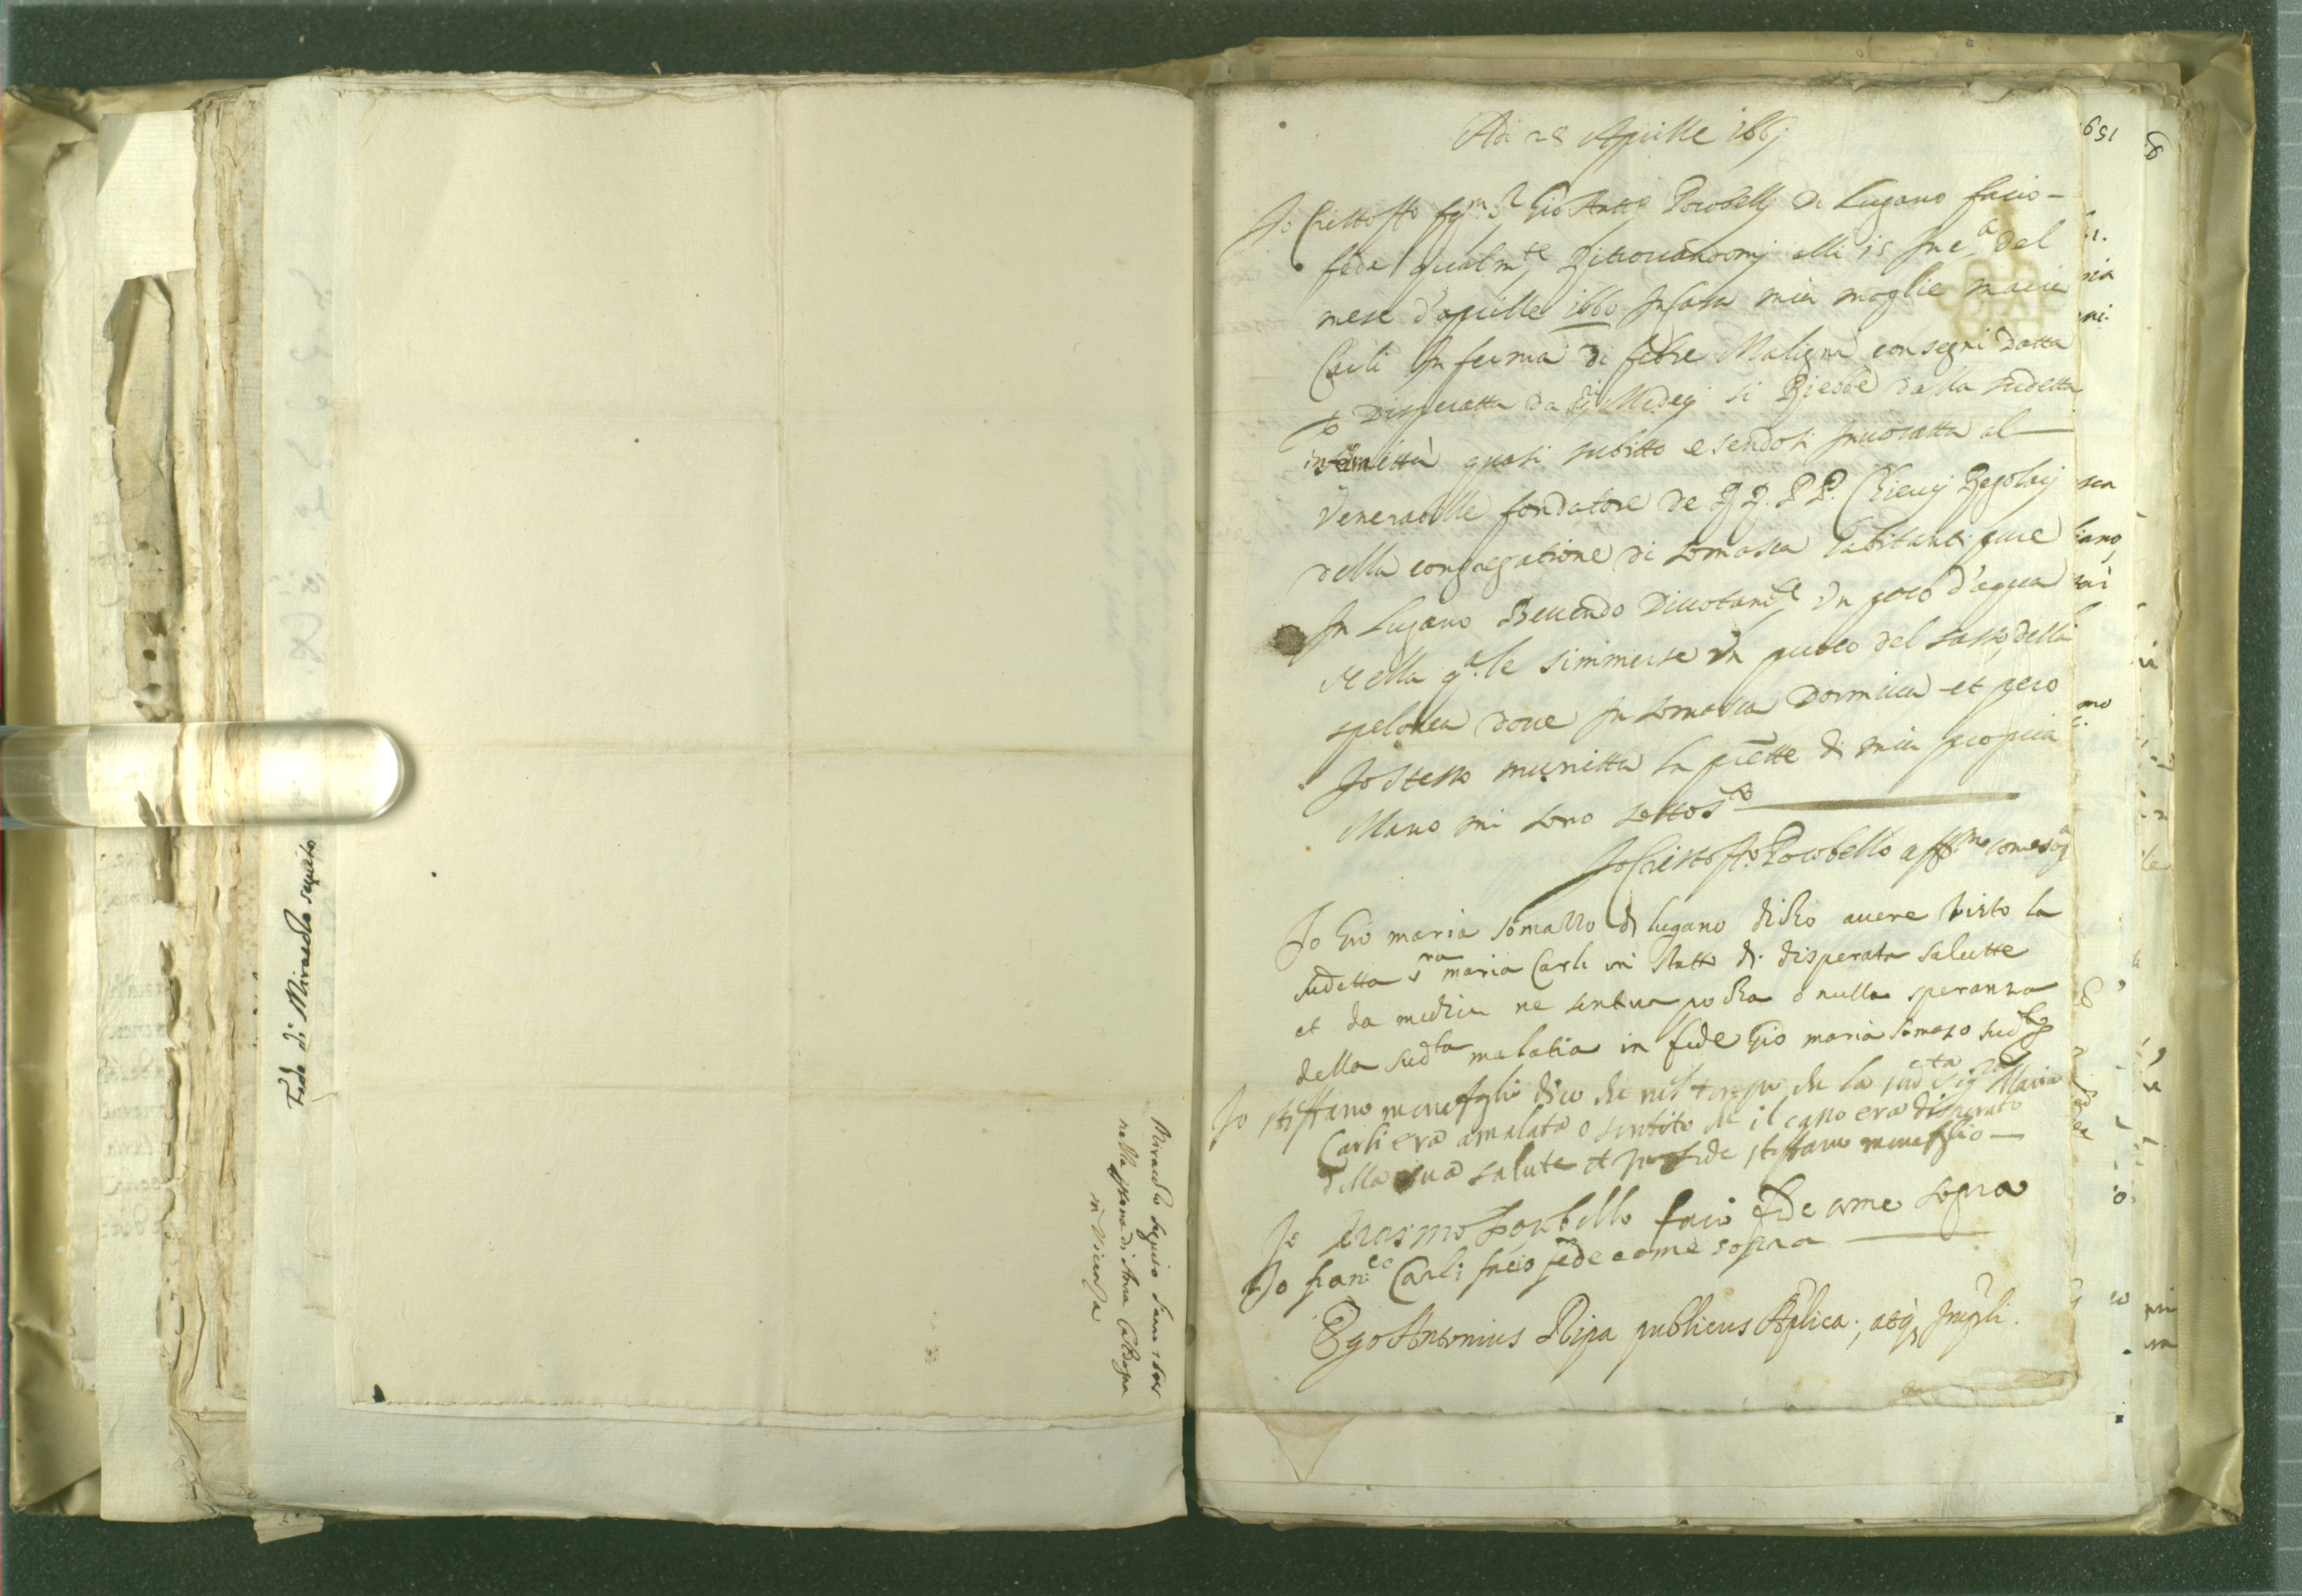 Fede di Miracolo seguito
Miracolo seguito l'anno
nella persona di Anna
in Vicenza
159
Adi 28 Aprille 166j
Jo Christoffo Gio Batta Pocobellj di Lugano facio
fede qualmte Ritrovandomj alli 15 del
mese d'aprille 1660 In Casa mia moglie maria
Carli Inferma di febre Maligna con segni datta
p disperatta da SSi Medicj si Riebbe dalla sudetta
infermittà quasi subitto esendosi invocatta al
Venerabille fondatore de RR. PP. Chiericj Regolarj
della congregatione di Somasca habitanti pure
In Lugano Bevendo Divotamte Un poco d'aqua
nella qale s'immerse Un puoco del sasso della
spelonca dove In Somasca Dormiva et pero
Jo Stesso munitta la prette di mia propria
Mano mi sono sottostto
Jo Christoffo Pocobello affmo come sopa
Jo Gio maria Somazzo di lugano dicho avere visto la
sudetta sra maria Carli in statto di disperata salutte
et da medici ne sentiva pocha o nulla speranza
della sudta malatia in fede Gio maria Somazo sudto
Jo steffano menefoglio dico che nel tempo che la sudta Sigra Maria
Carli era amalata o sentito che il caso era disperato
della sua salute et per fede steffano menefoglio
Jo Erasmo Pocobello facio fede come sopra
Jo Franco Carli facio fede come sopra
Ego Antonius Ripa publicus Aplica; atq Impli.